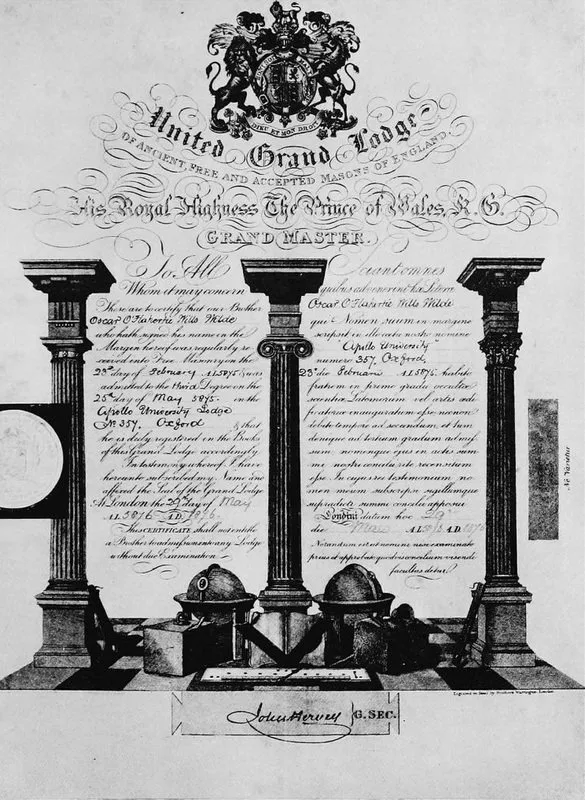 DIEU ET MON DROIT
United Grand Lodge
OF ANCIENT, FREE AND ACCEPTED MASONS OF ENGLAND.
His Royal Highness The Prince of Wales, K. G.
GRAND MASTER.
To All
Whom it may concern
These are to certify that our Brother
Oscar O'Flahertie Wills Wilde
who hath signed his name in the
Margin hereof was regularly re
ceived into Free Masonry on the
23rd day of February A.L. 5875 & was
admitted to the third Degree on the
25th day of May 5875 in the
Apollo University Lodge
No 357, Oxford & that
he is duly registered in the Books
of this Grand Lodge accordingly.
In testimony whereof I have
hereunto subscribed my Name and
affixed the Seal of the Grand Lodge
At London the day of May
A.L. 5876 A.D. 1876
This CERTIFICATE shall not entitle
a Brother to admission into any Lodge
without due Examination
Sciant omnes
quibus advenerint hæ Literæ
Oscar O'Flahertie Wills Wilde
qui Nomen suum in margine
scripsit in illo cœtu nostro nomine
"Apollo University"
numero 357, Oxford,
23 die Februarii A.L. 5875, habito
fratrem in primo gradu occultæ
scientiæ Latomorum vel artis ædi
ficatoriæ inauguratum esse necnon
debito tempore ad secundum, et tum
denique ad tertium gradum admis
sum nomenque ejus in actis sum
mi nostri concilii rite recensitum
esse. In cujus rei testimonium no
men meum subscripsi sigillumque
supradicti summi concilii apposui
Londini datum hoc
die Maii A.L. 5876 A.D. 1876
Notandum est ut nemo nisi examinatio
prius et approbatio quovis concilium visendi
facultas detur.
Ne Varietur
John Hervey G. SEC.